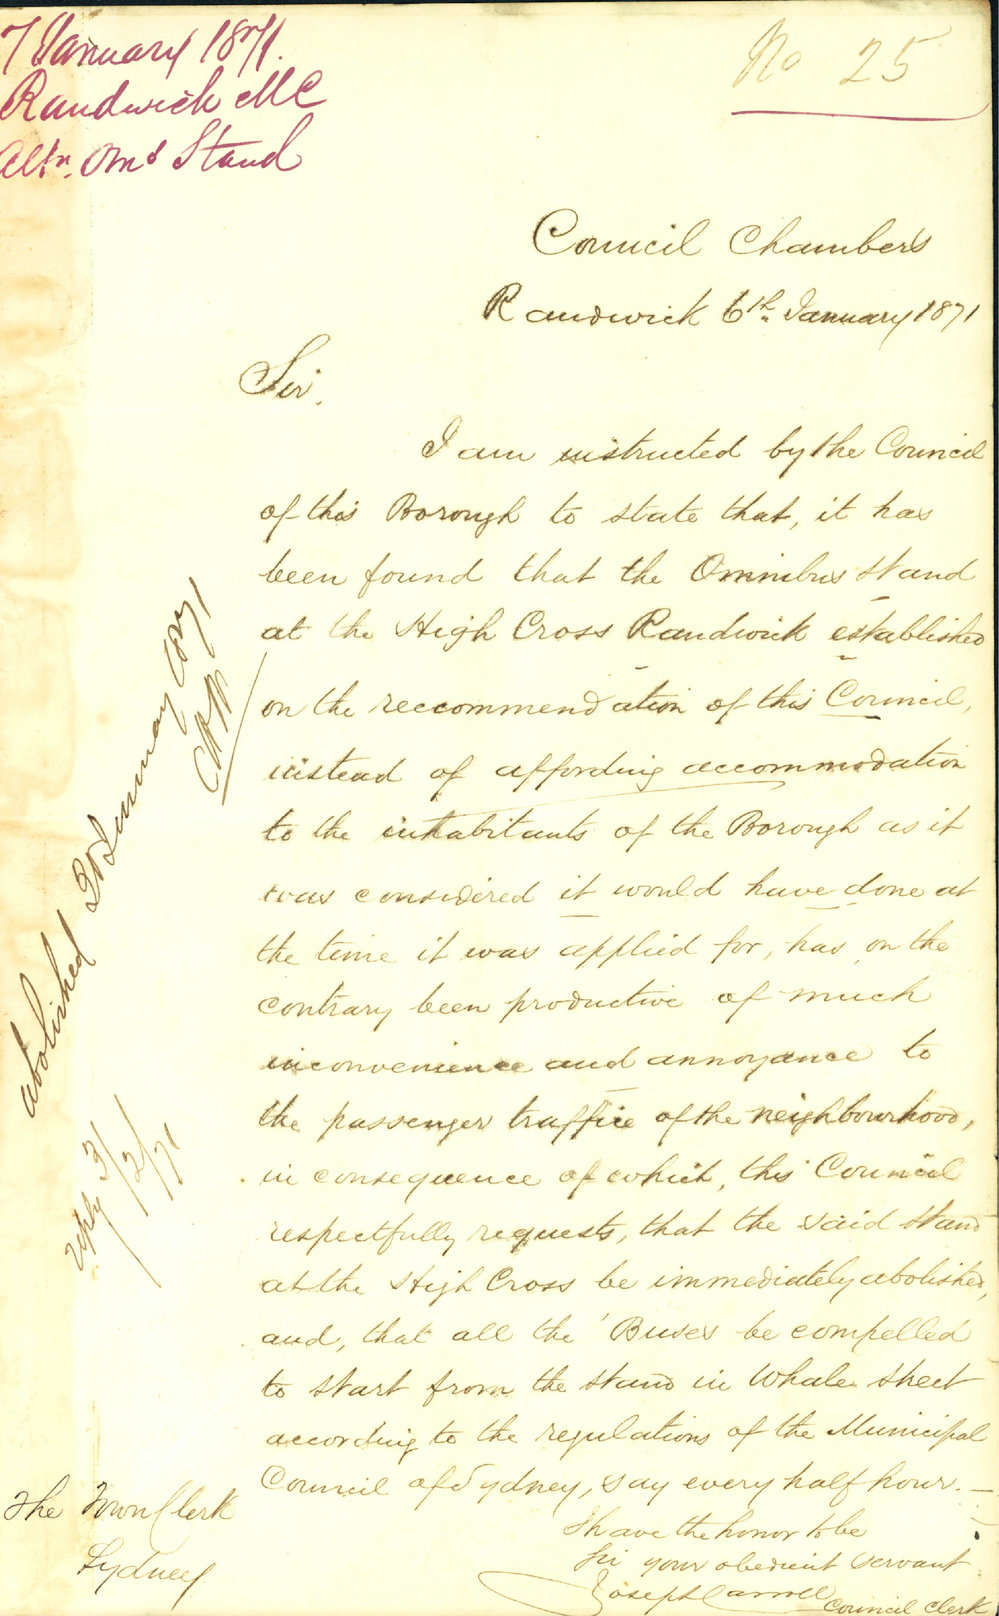 7 January 1871.
Randwick MC
Altn. Oms Stand
No 25
Council Chambers
Randwick 6th. January 1871
Sir,
I am instructed by the Council
of this Borough to state that, it has
been found that the Omnibus Stand
at the High Cross Randwick established
on the reccommendation of this Council,
instead of affording accommodation
to the inhabitants of the Borough as it
was considered it would have done at
the time it was applied for, has on the
contrary been productive of much
inconvenience and annoyance to
the passenger traffic of the neighbourhood,
in consequence of which, this Council
respectfully requests, that the said Stand
at the High Cross be immediately abolished,
and, that all the 'Buses be compelled
to start from the stand in Whale Street
according to the regulations of the Municipal
Council of Sydney, say every half hour.—
I have the honor to be
Sir your obedient servant
Joseph Carroll
Council Clerk
The Town Clerk
Sydney
abolished
reply 3/2/71